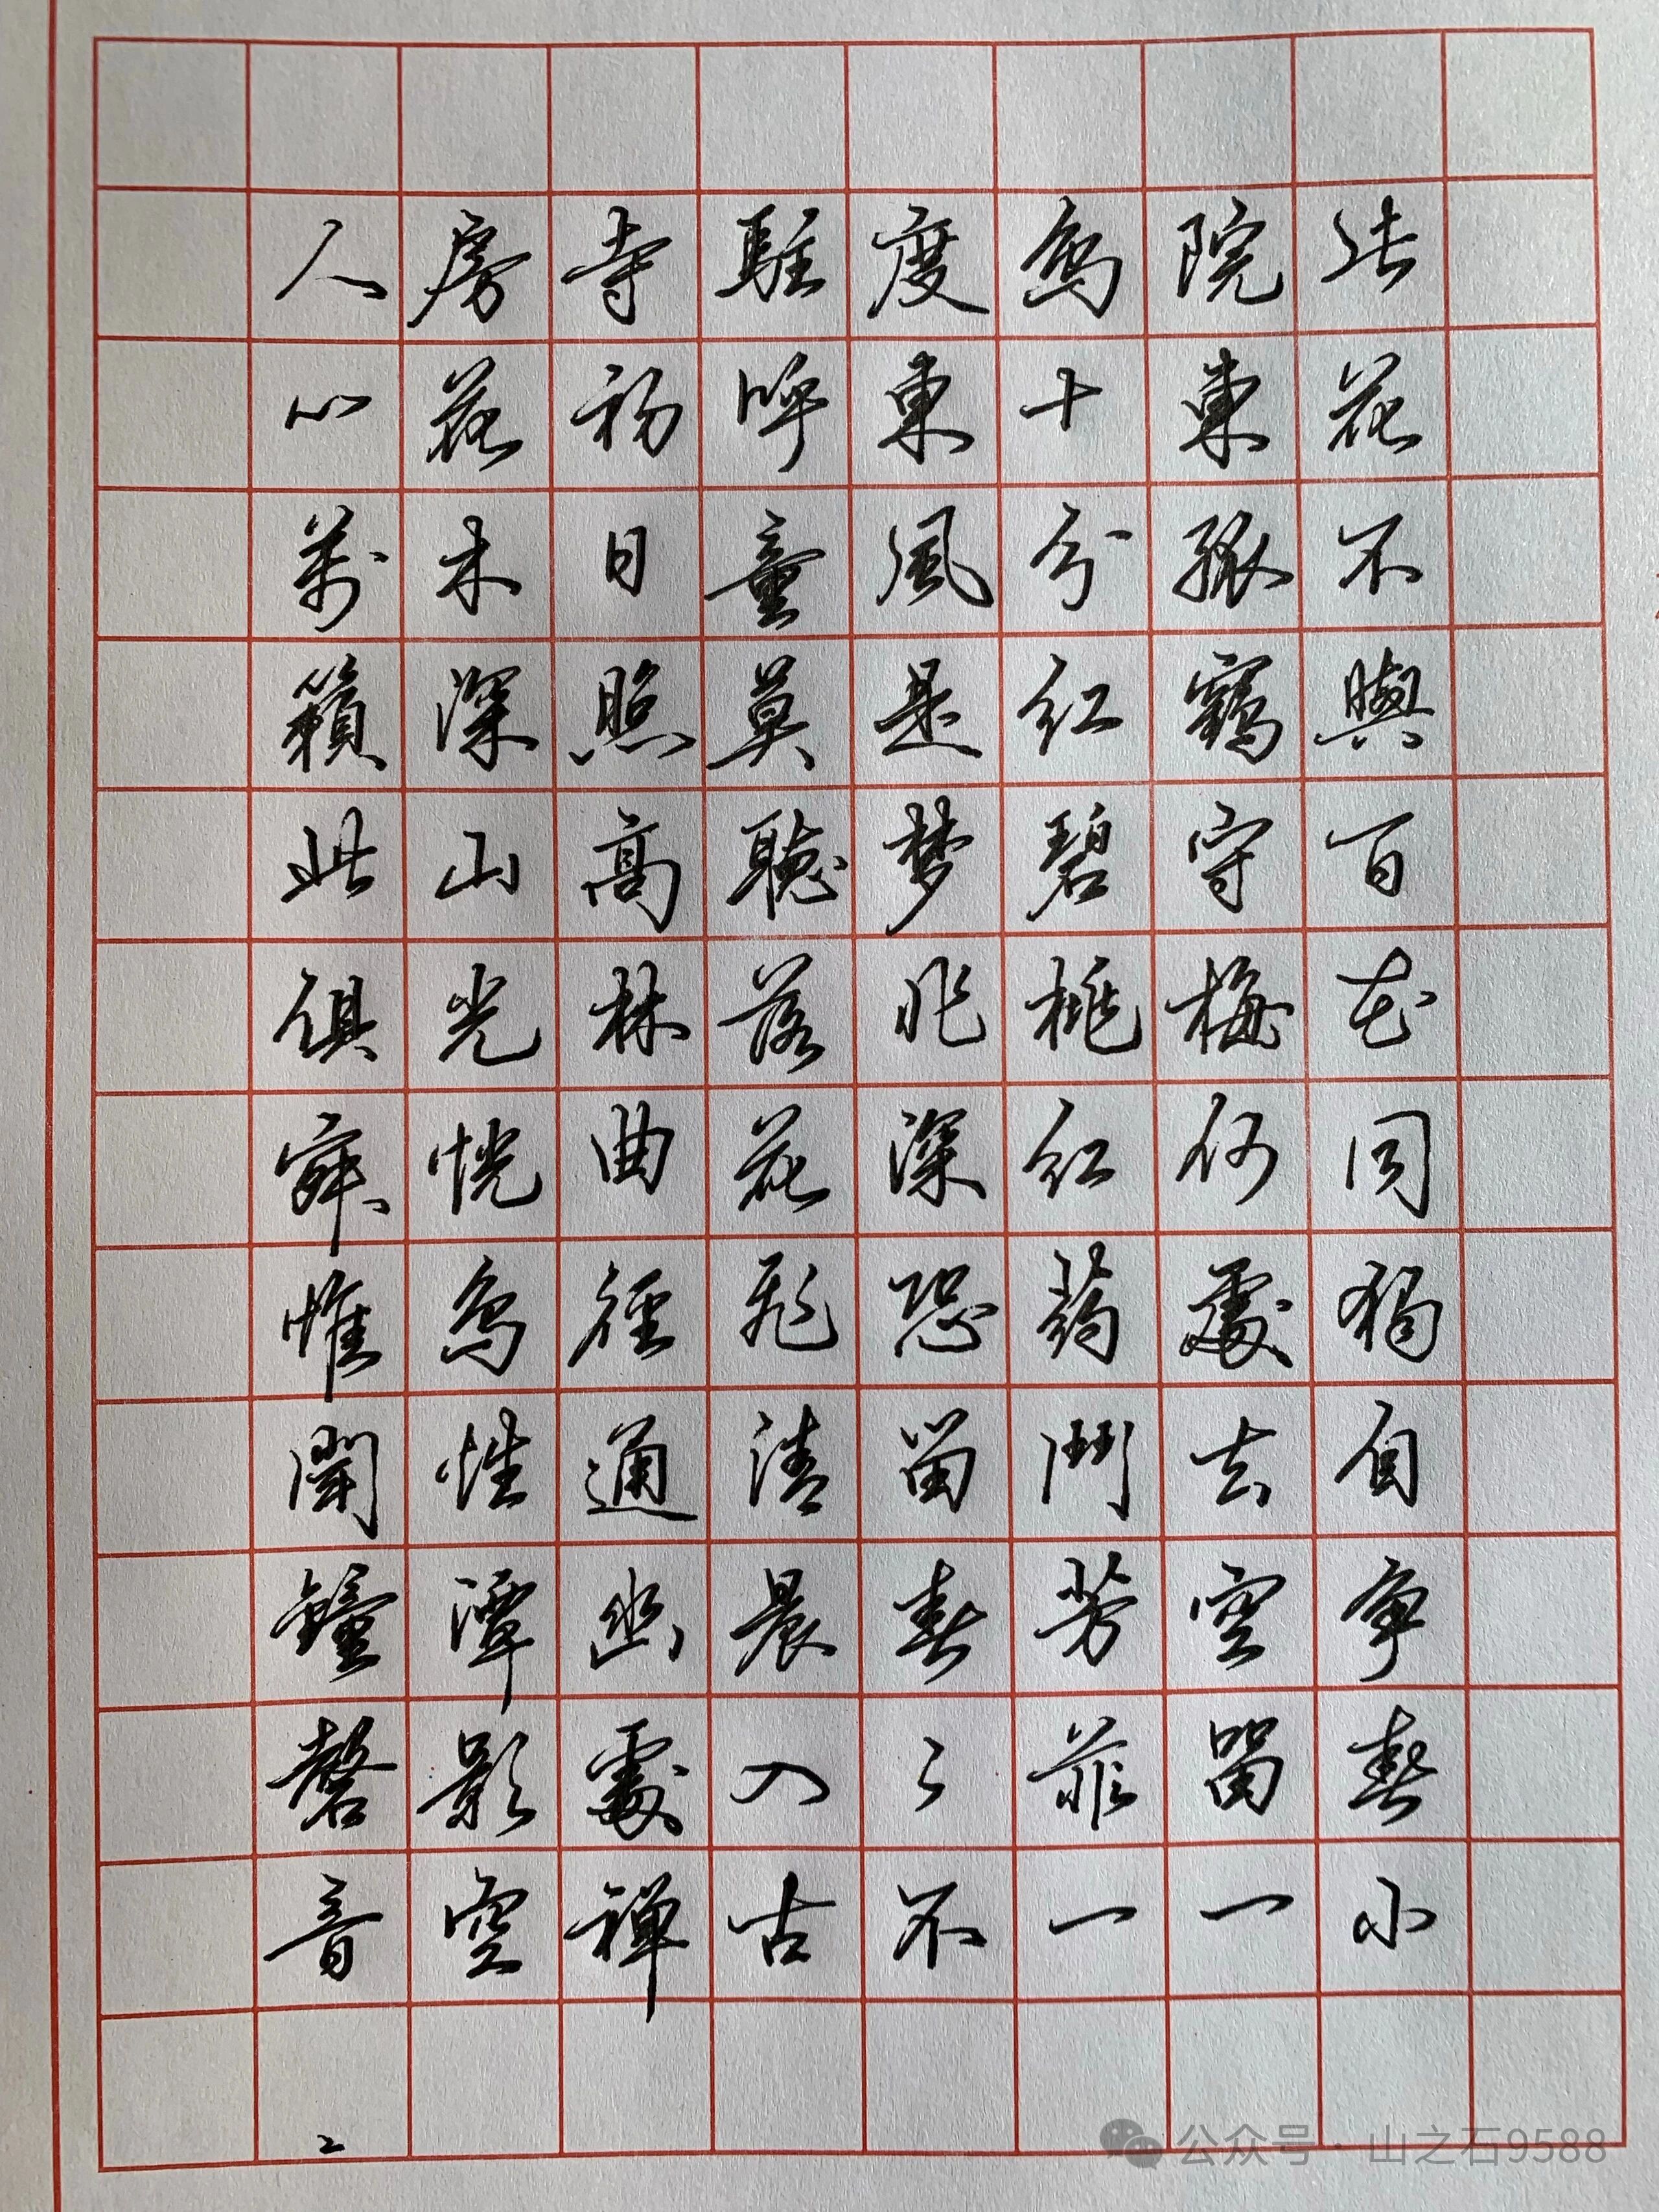 此花不與百花同獨自争春小
院東孤鶴守梅何處去空留一
鳥十分紅碧桃紅葯鬥芳菲一
度東風是夢非深恐留春〻不
駐呼童莫聽落花飛清晨入古
寺初日照高林曲徑通幽處禅
房花木深山光悦鳥性潭影空
人心萬籟此俱寂惟聞鐘磬音
2
公众号·山之石9588